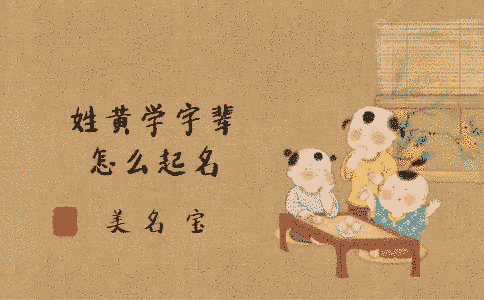 姓黄学字辈
怎么起名
美名宝